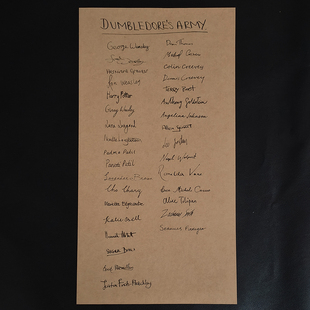 DUMBLEDORE'S ARMY
George Weasley
Hermione Granger
Ron Weasley
Harry Potter
Ginny Weasley
Luna Lovegood
Neville Longbottom
Padma Patil
Parvati Patil
Lavender Brown
Cho Chang
Marietta Edgecombe
Katie Bell
Hannah Abbott
Susan Bones
Justin Finch-Fletchley
Dean Thomas
Michael Corner
Colin Creevey
Dennis Creevey
Terry Boot
Anthony Goldstein
Angelina Johnson
Alicia Spinnet
Lee Jordan
Nigel
Romilda Vane
Zacharias Smith
Seamus Finnigan